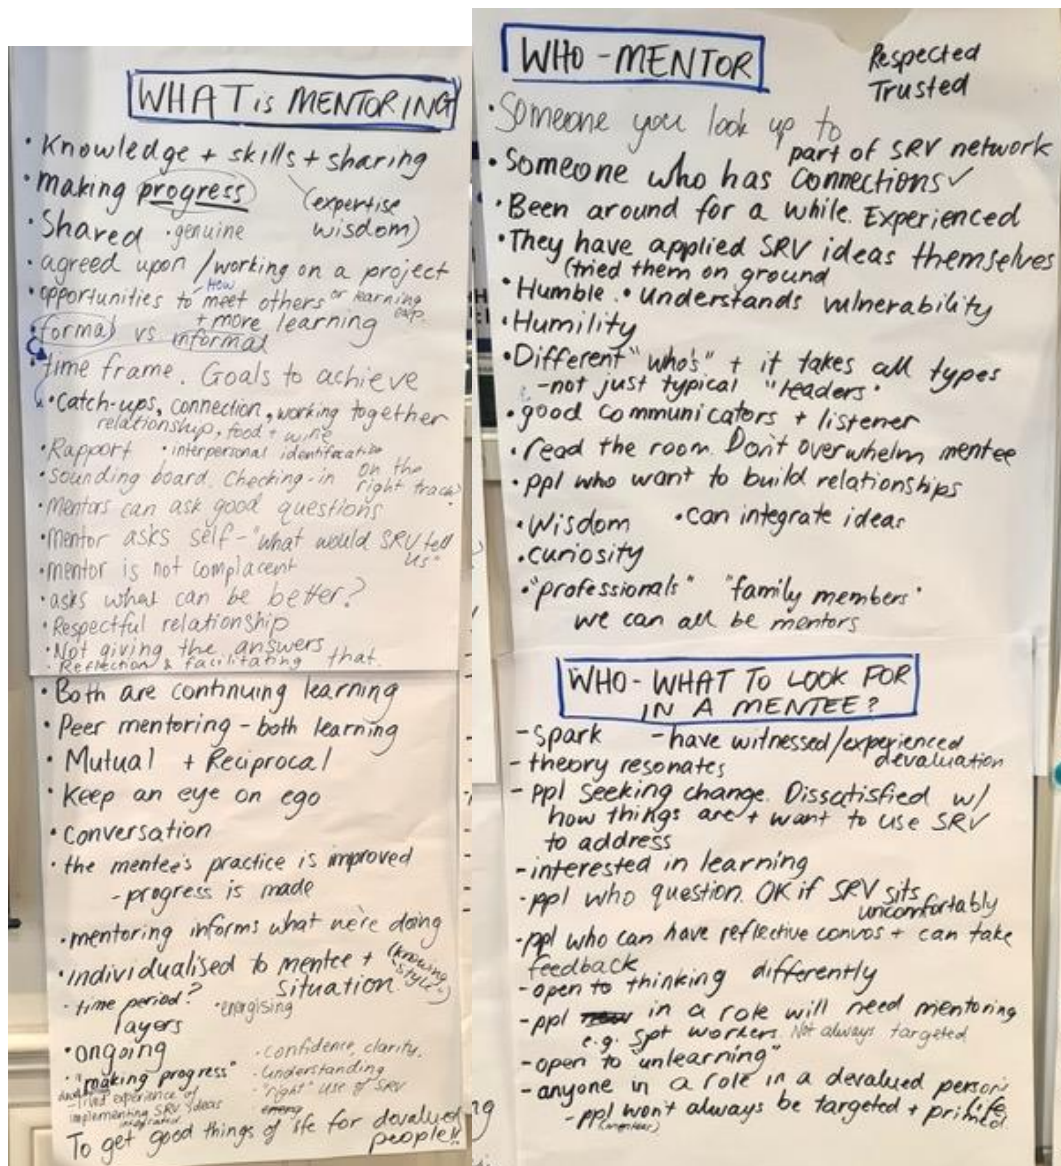 WHAT is MENTORING
• Knowledge + skills + sharing
(expertise
wisdom)
• making progress
• Shared • genuine
• agreed upon / working on a project
• opportunities to meet others or learning exp.
How
+ more learning
• formal vs informal
• time frame. Goals to achieve
• Catch-ups, connection, working together
relationship, food + wine
• Rapport • interpersonal identification
• sounding board. Checking-in on the
right track?
• mentors can ask good questions
• mentor asks self - "what would SRV tell
us"
• mentor is not complacent
• asks what can be better?
• Respectful relationship
• Not giving the answers
• Reflection & facilitating that.
• Both are continuing learning
• Peer mentoring - both learning
• Mutual + Reciprocal
• Keep an eye on ego
• conversation
• the mentee's practice is improved
- progress is made
• mentoring informs what we're doing
• individualised to mentee + (knowing
situation style)
• time period? • energising
layers
• ongoing
• "making progress"
- lived experience of
implementing SRV ideas
• confidence, clarity.
• understanding
• "right" use of SRV
To get good things of life for devalued
people!!
WHO - MENTOR
Respected
Trusted
• Someone you look up to
part of SRV network
• Someone who has connections ✓
• Been around for a while. Experienced
• They have applied SRV ideas themselves
(tried them on ground
• Humble. • Understands vulnerability
• Humility
• Different "who's" + it takes all types
- not just typical "leaders"
• good communicators + listener
• read the room. Don't overwhelm mentee
• ppl who want to build relationships
• Wisdom • can integrate ideas
• curiosity
• "professionals" "family members"
we can all be mentors
WHO - WHAT TO LOOK FOR
IN A MENTEE?
- spark - have witnessed/experienced
devaluation
- theory resonates
- ppl seeking change. Dissatisfied w/
how things are + want to use SRV
to address
- interested in learning
- ppl who question. OK if SRV sits
uncomfortably
- ppl who can have reflective convos + can take
feedback
- open to thinking differently
- ppl in a role will need mentoring
e.g. spt workers. Not always targeted
- open to "unlearning"
- anyone in a role in a devalued person's
life
- ppl won't always be targeted + primed.
(mentees)